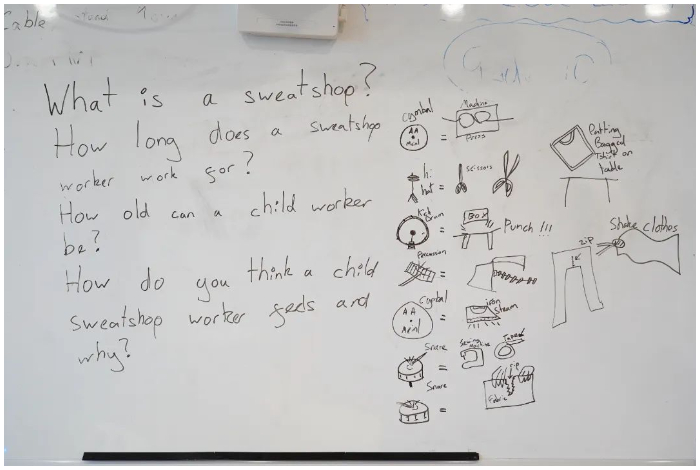 What is a sweatshop?
How long does a sweatshop
worker work for?
How old can a child worker
be?
How do you think a child
sweatshop worker feels and
why?
Cymbal
AA
Minl
=
Machine
Press
hi
hat
=
scissors
Kick Drum
=
BOX
Punch !!!
Percussion
=
Cymbal
AA
Minl
=
iron
steam
Snare
=
Sewing
Machine
Snare
=
zip
Fabric
Putting
Bagged
Tshirt on
table
zip
Shake clothes